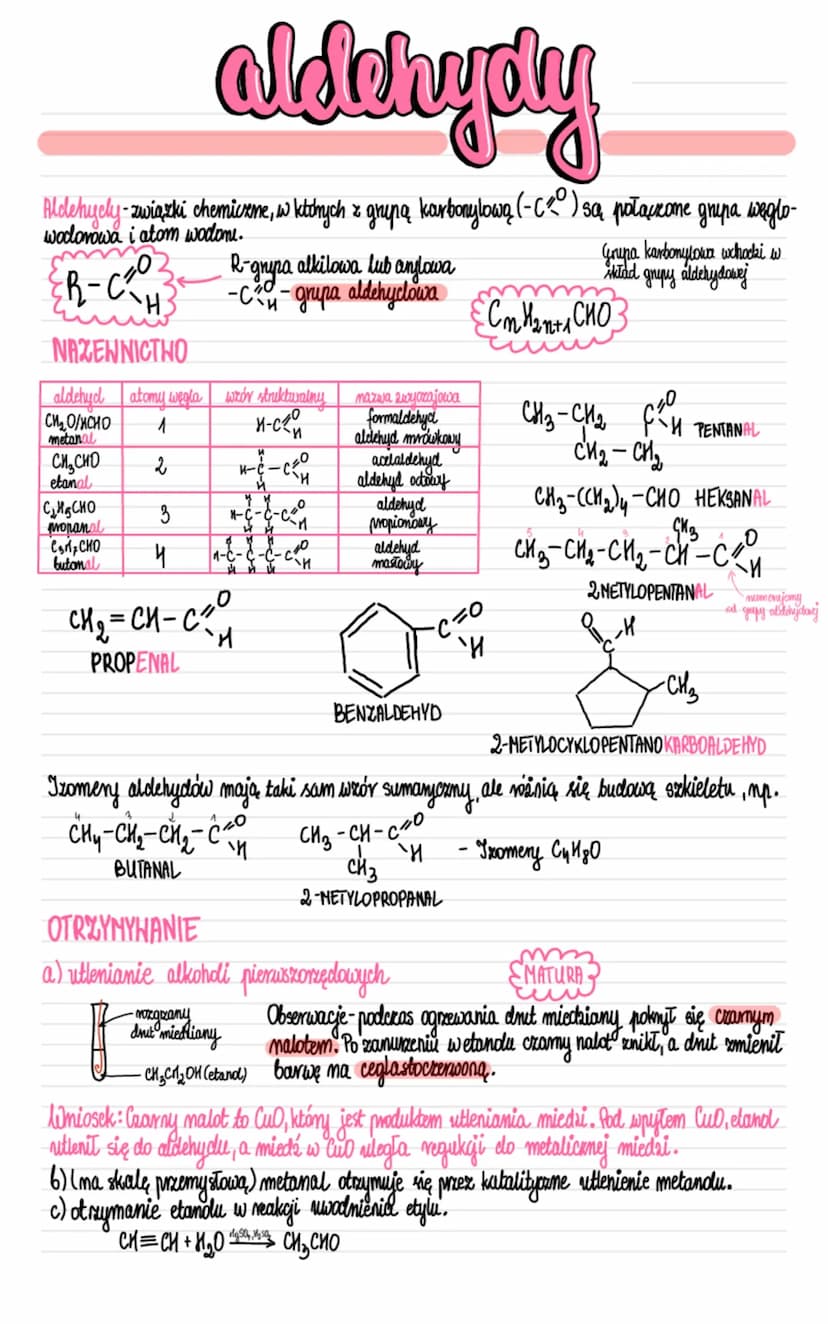 aldehydy
Aldehydy - związki chemiczne, w których z grupą karbonylową (-C=O) są połączone grupa węglo-
wodorowa i atom wodoru.
R-C=O H
R-grupa alkilowa lub arylowa
-C=O H - grupa aldehydowa
Grupa karbonylowa wchodzi w
skład grupy aldehydowej
CnH2n+1CHO
NAZEWNICTWO
aldehyd atomy węgla wzór strukturalny nazwa zwyczajowa
CH₂O/HCHO
metanal
1
H-C=O H
formaldehyd
aldehyd mrówkowy
CH₃CHO
etanal
2
H H-C-C=O H H
acetaldehyd
aldehyd octowy
C₂H₅CHO
propanal
3
H H H-C-C-C=O H H H
aldehyd
propionowy
C₃H₇CHO
butanal
4
H H H H-C-C-C-C=O H H H H
aldehyd
masłowy
CH₃-CH₂ C=O H PENTANAL
CH₂-CH₂
CH₃-(CH₂)₄-CHO HEKSANAL
CH₃
5 4 3 2 1
CH₃-CH₂-CH₂-CH-C=O H
2METYLOPENTANAL
numerujemy
od grupy aldehydowej
CH₂=CH-C=O H
PROPENAL
C=O H
BENZALDEHYD
O H
C
CH₃
2-METYLOCYKLOPENTANOKARBOALDEHYD
Izomery aldehydów mają taki sam wzór sumaryczny, ale różnią się budową szkieletu, np.
4 3 2 1
CH₄-CH₂-CH₂-C=O H
BUTANAL
CH₃-CH-C=O H
CH₃
2-METYLOPROPANAL
- Izomery C₄H₈O
OTRZYMYWANIE
a) utlenianie alkoholi pierwszorzędowych
MATURA
rozgrzany
drut miedziany
CH₃CH₂OH (etanol)
Obserwacje - podczas ogrzewania drut miedziany pokrył się czarnym
nalotem. Po zanurzeniu w etanolu czarny nalot znikł, a drut zmienił
barwę na ceglastoczerwoną.
Wniosek: Czarny nalot to CuO, który jest produktem utleniania miedzi. Pod wpływem CuO, etanol
utlenił się do aldehydu, a miedź w CuO uległa redukcji do metalicznej miedzi.
b) (na skalę przemysłową) metanal otrzymuje się przez katalityczne utlenienie metanolu.
c) otrzymanie etanolu w reakcji uwodnienia etynu.
CH≡CH + H₂O HgSO₄, H₂SO₄ → CH₃CHO